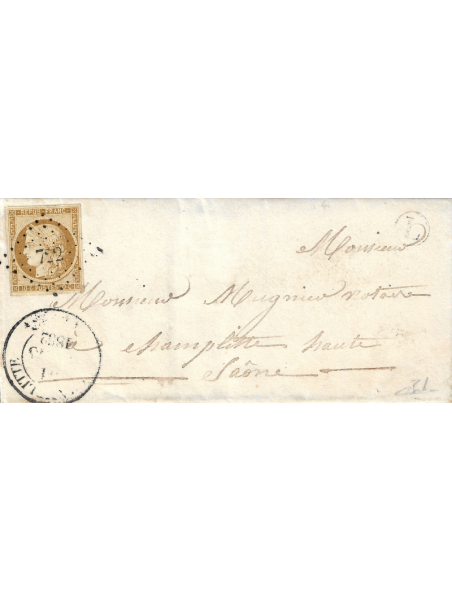 REPUB. FRANC.
722
L
Monsieur
Monsieur Mugnier notaire
a champlitte haute
Saône
1852